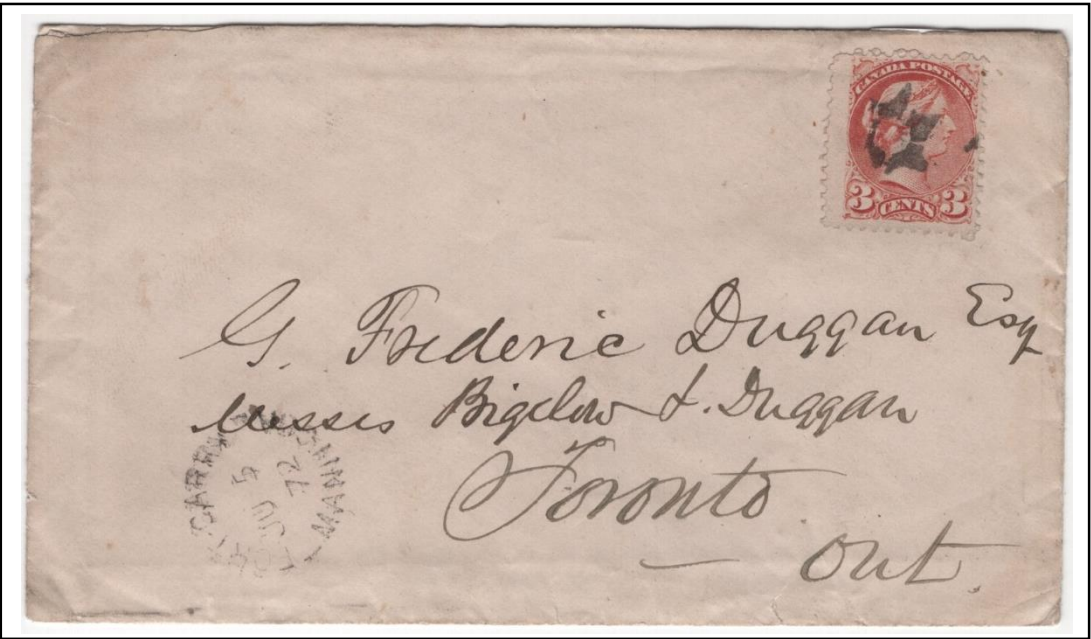 CANADA POSTAGE
3 CENTS 3
G. Frederic Duggan Esq
Messrs Bigelow & Duggan
Toronto
Ont.
FORT GARRY
JU 5
72
MANITOBA